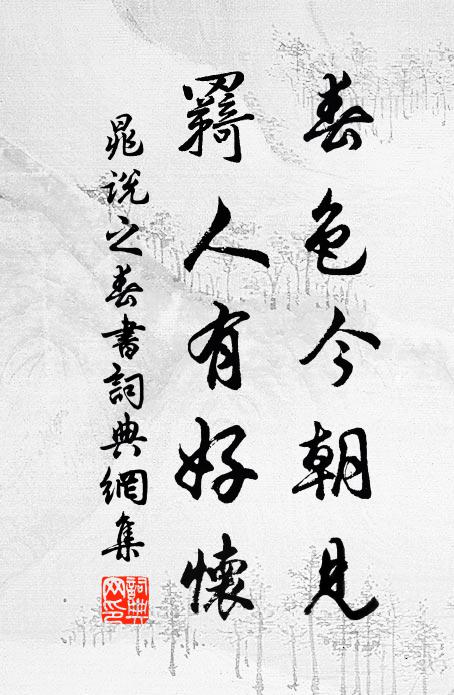 春色今朝見
羇人有好懷
晁說之春書詞典網集
詞典網印